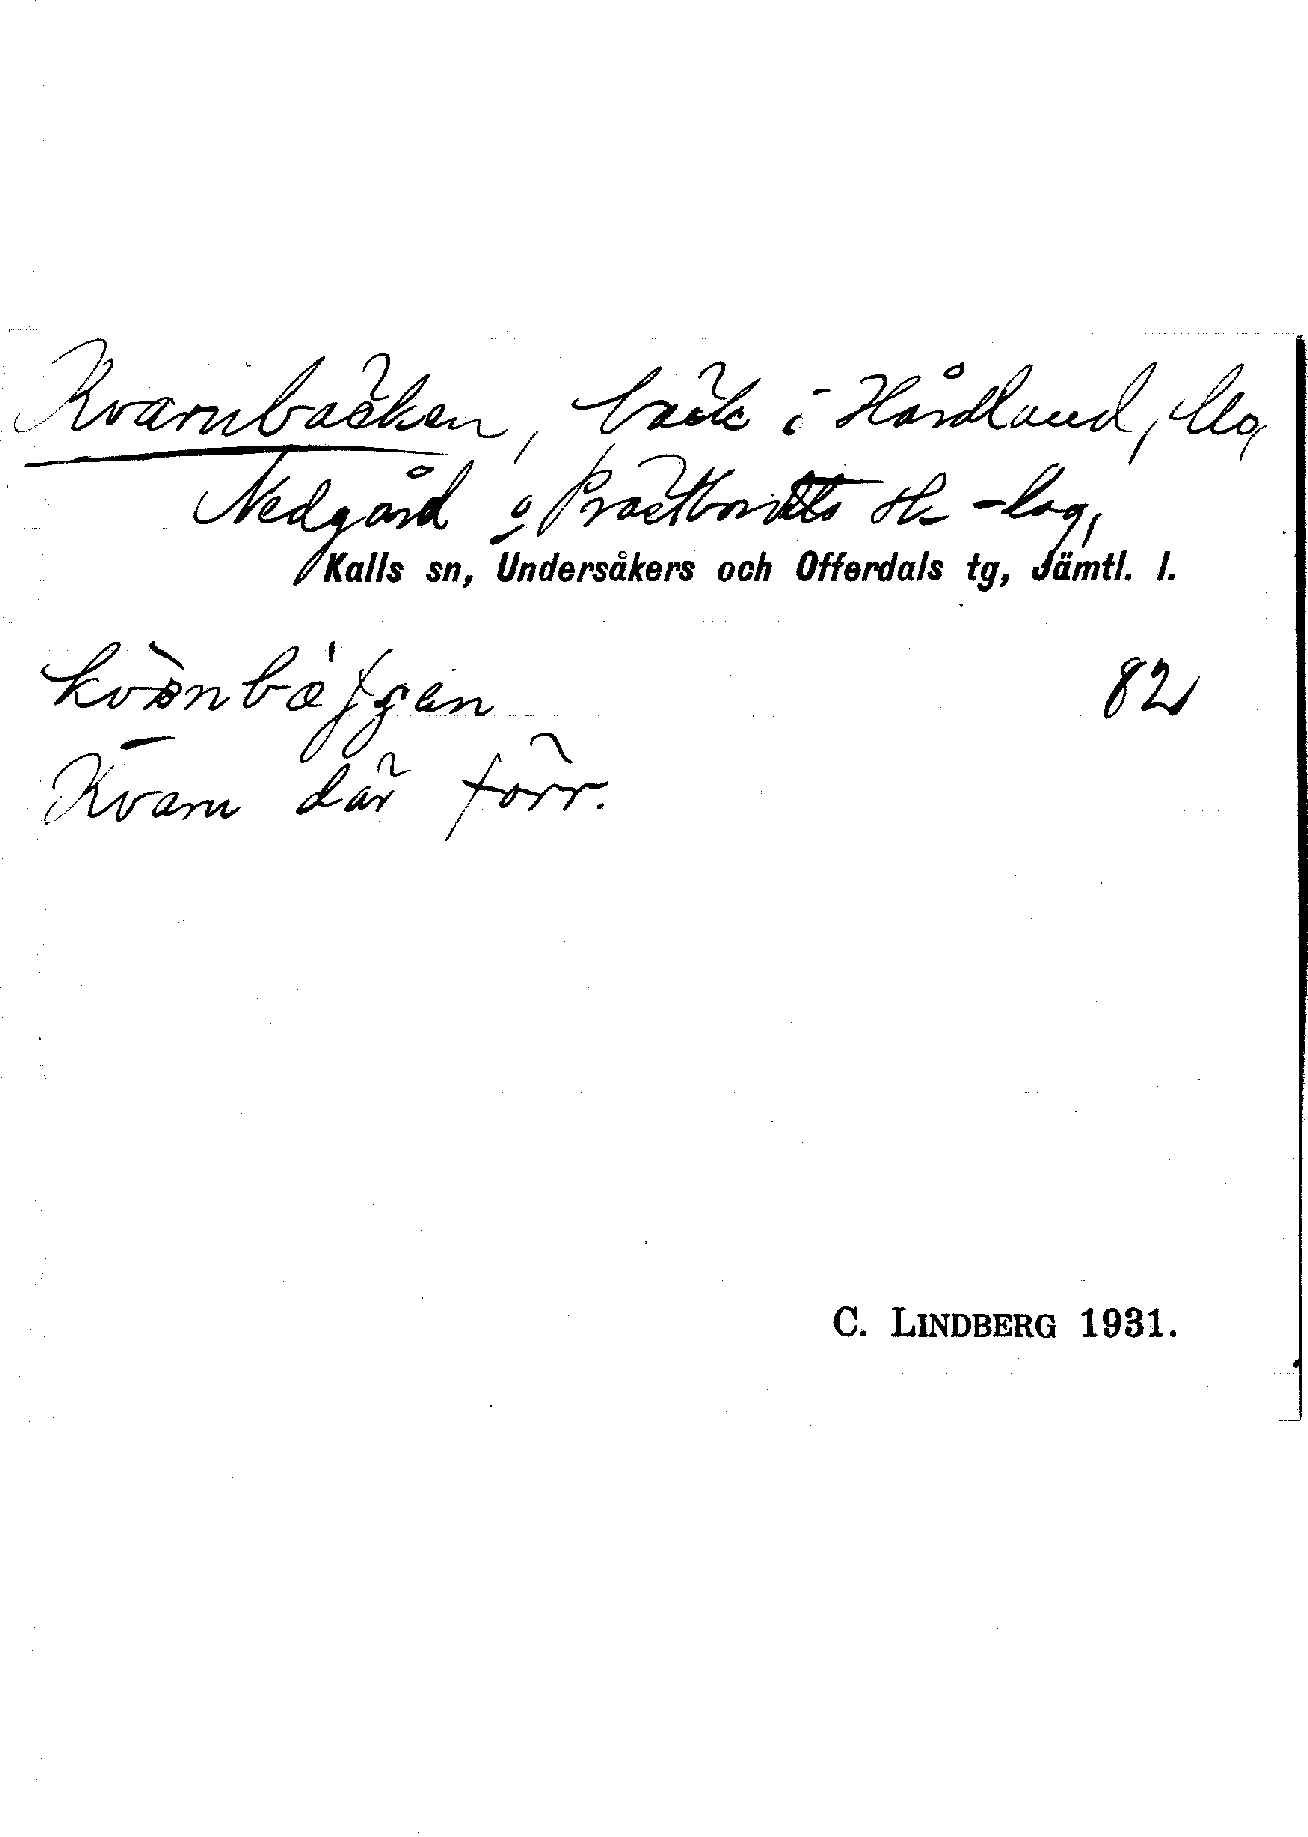 Kvarnbäcken, bäck i Hårdland,
Nedgård o Prästbordets
Kalls sn, Undersåkers och Offerdals tg, Jämtl. l.
82
Kvarn där förr.
C. LINDBERG 1931.